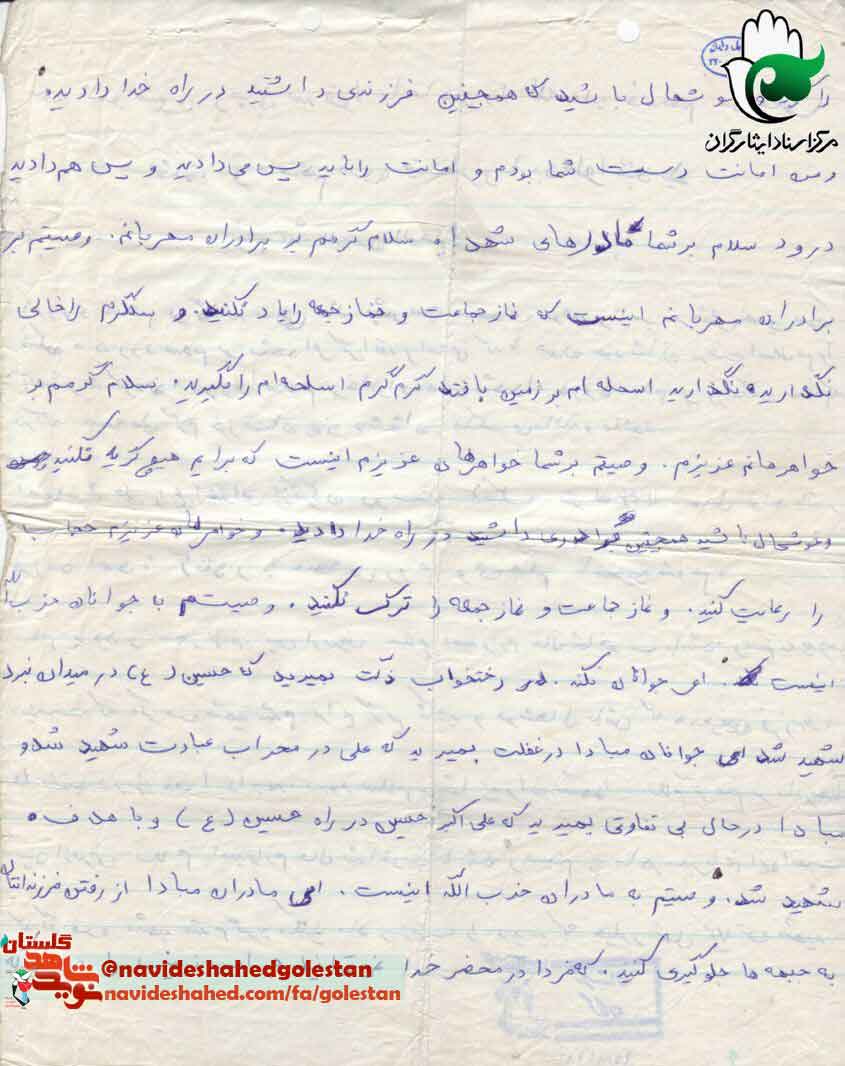 مرکز اسناد ایثارگران
باشید که همچنین فرزندی داشتید در راه خدا دادید.
ومن امانت دست شما بودم و امانت را باید پس می دادید و پس هم دادید
درود سلام بر شما مادرهای شهدا و سلام گرمم بر برادران مهربانم. وصیتم بر
برادران مهربانم اینست که نماز جماعت و نماز جمعه را یاد نکنید. و سنگرم را خالی
نگذارید و نگذارید اسحله ام بر زمین بافتد گرم گرم اسلحه ام را بگیرید. سلام گرمم بر
خواهرهانم عزیزم. وصیتم بر شما خواهرهای عزیزم اینست که برایم هیچ گریه نکنید
وخوشحال باشید همچنین برادری داشتید در راه خدا دادید. و خواهرهای عزیزم حجاب
را رعایت کنید. و نماز جماعت و نماز جمعه را ترک نکنید. وصیتم با جوانان حزب الله
اینست. ای جوانان نکند در رختخواب ذلت بمیرید که حسین (ع) در میدان نبرد
شهید شد ای جوانان مبادا در غفلت بمیرید که علی در محراب عبادت شهید شد و
مبادا در حال بی تفاوتی بمیرید که علی اکبر حسین در راه حسین (ع) و با هدف
شهید شد. وصیتم به مادران حزب الله اینست. ای مادران مبادا از رفتن فرزندانتان
به جبهه ها جلوگیری کنید. که فردا در محضر خدا
نوید شاهد گلستان
@navideshahedgolestan
navideshahed.com/fa/golestan